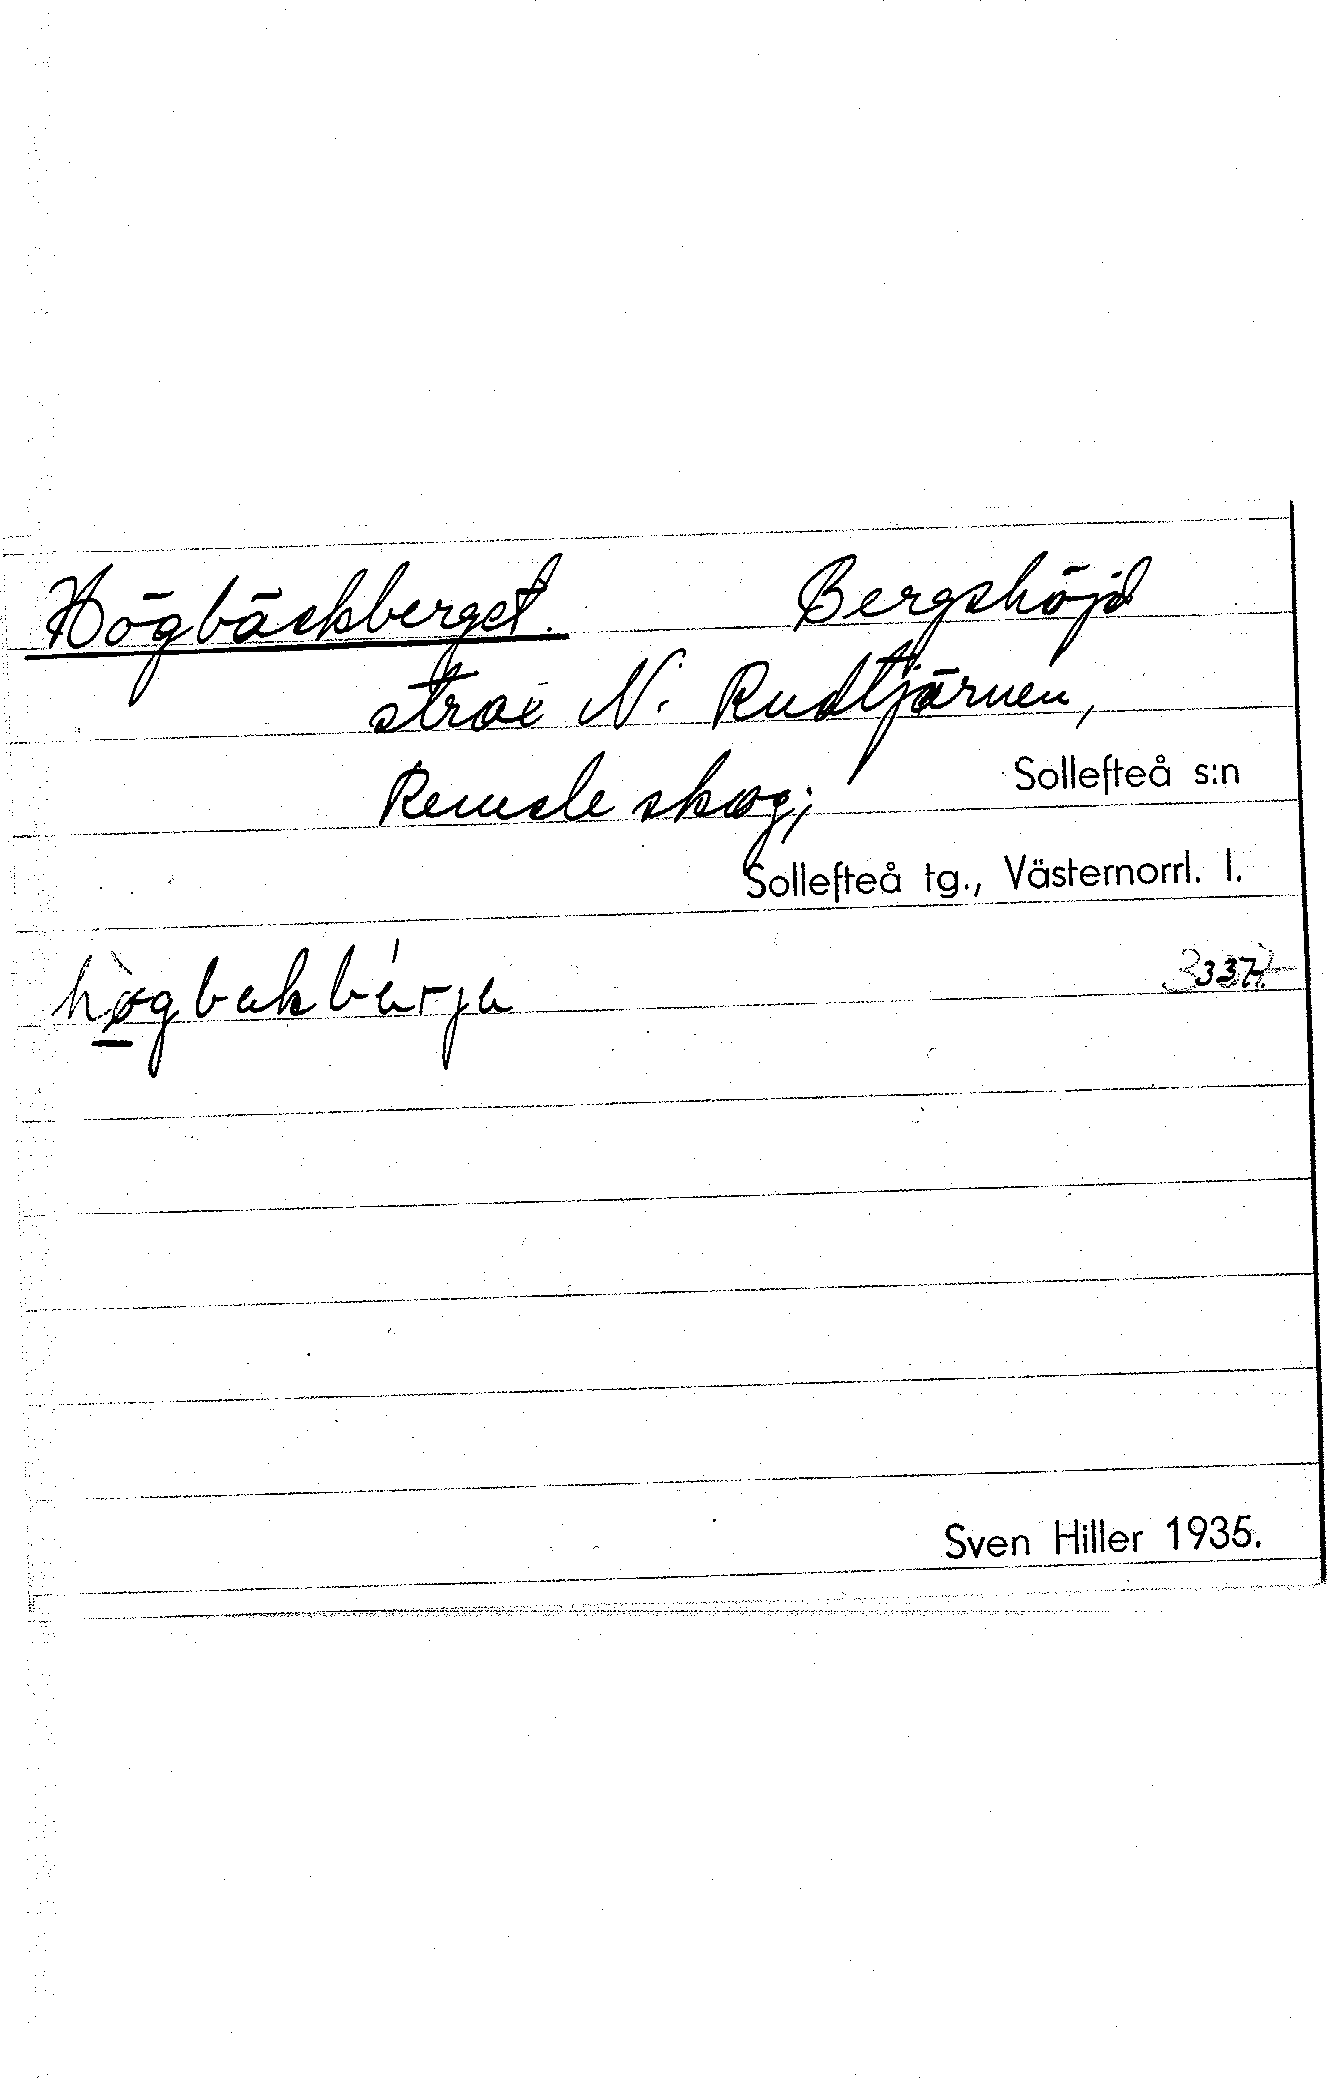 Högbäckberget. Bergshöjd
strax N. Rudtjärnen,
Remsle skog;
Sollefteå s:n
Sollefteå tg., Västernorrl. l.
Sven Hiller 1935.